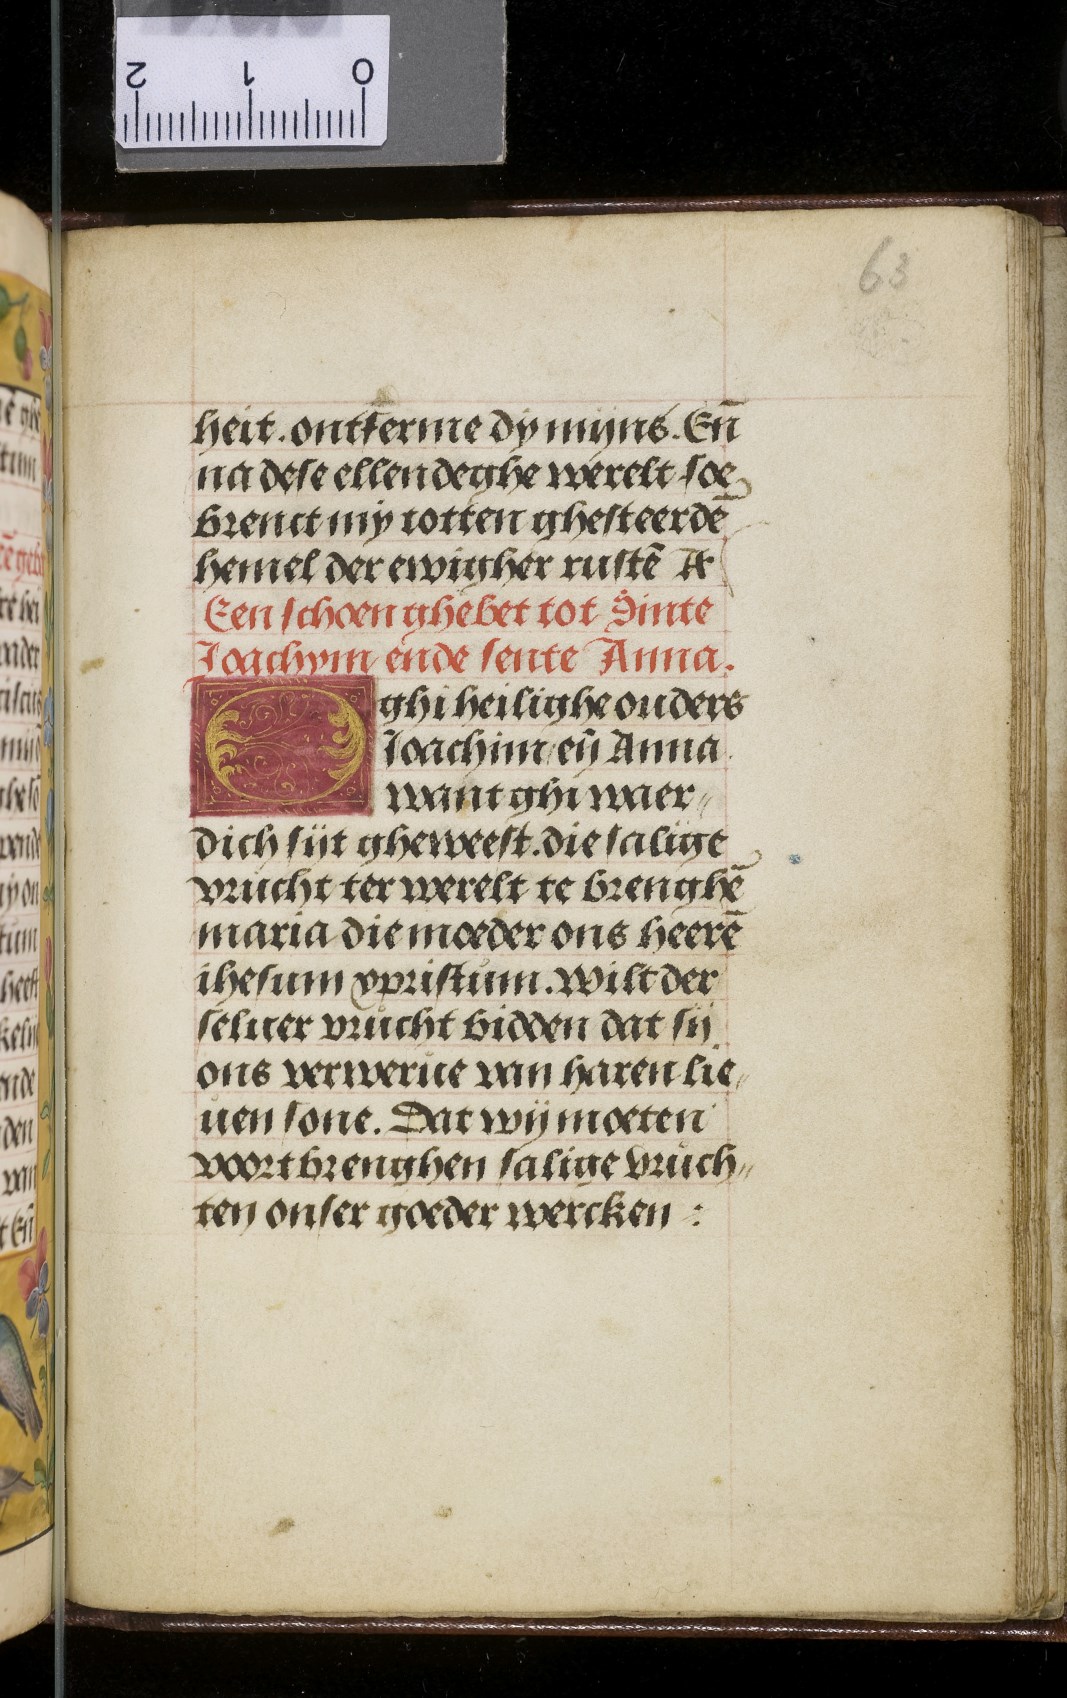 2 1 0
63
heit. ontferme dy mijns. En̄
na dese ellendeghe werelt soe
brenct my totten ghesteerdē
hemel der ewigher rustē A
Een schoen ghebet tot Sinte
Joachym ende sente Anna.
O ghi heilighe ouders
Joachim eñ Anna
want ghi waer„
dich sijt gheweest. die salige
vrucht ter werelt te brenghē
maria die moeder ons heerē
ihesum xpristum. Wilt der
seluer vrucht bidden dat sij
ons verwerue van haren lie„
uen sone. Dat wij moeten
voort brenghen salige vruch„
ten onser goeder wercken :